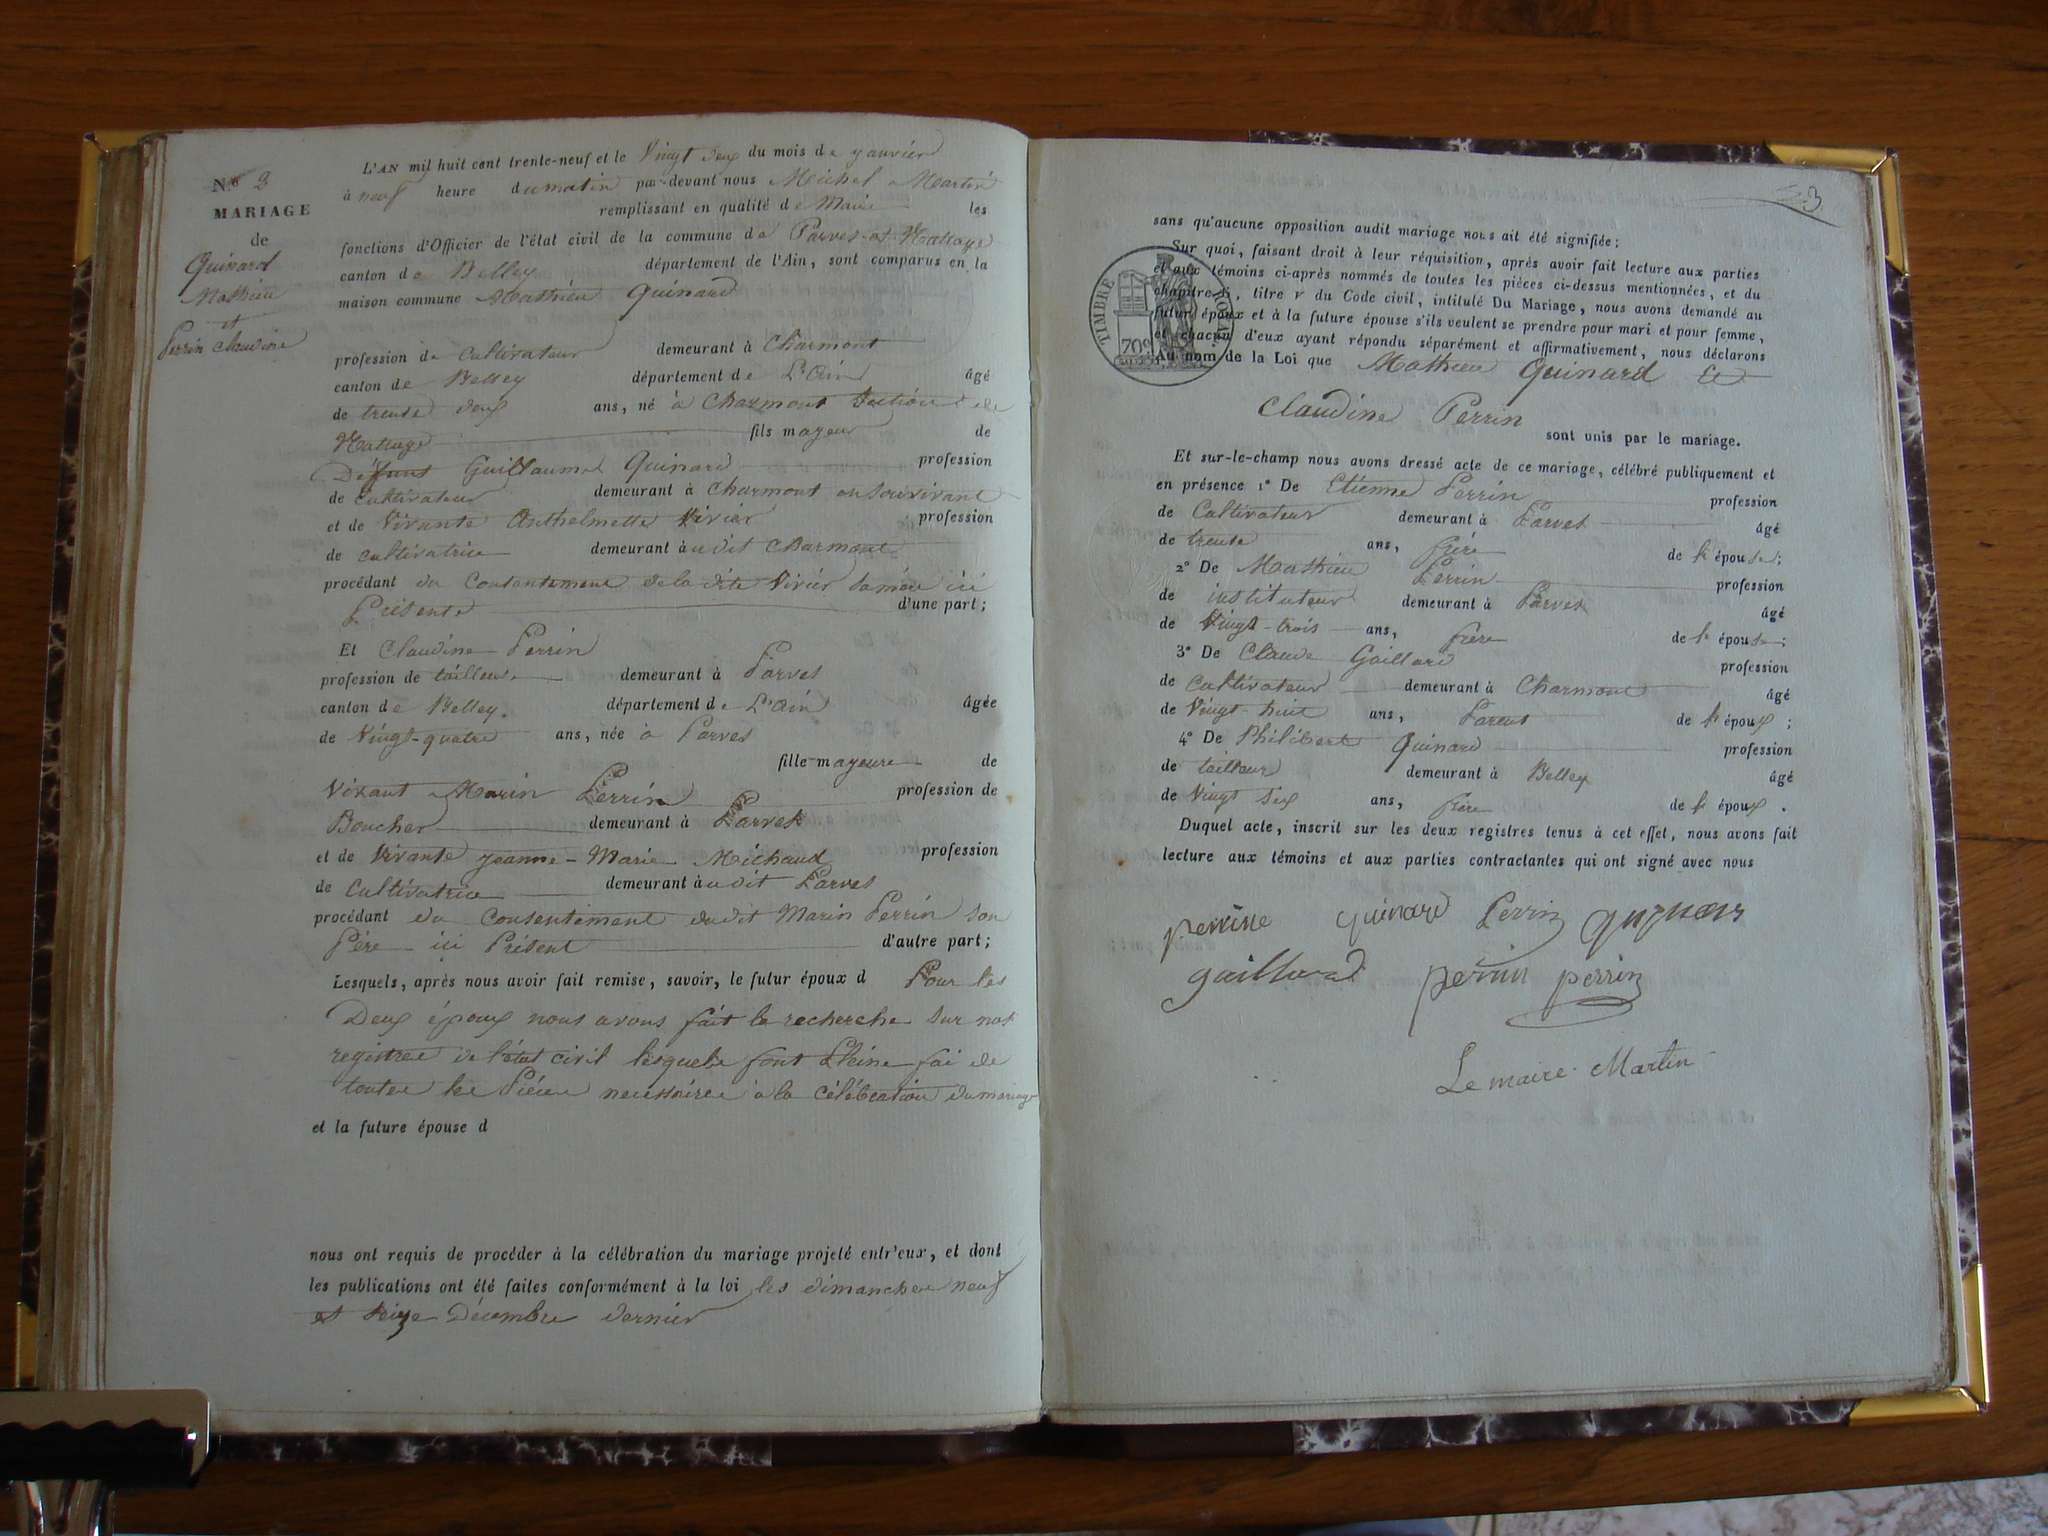 N.º 3
MARIAGE
de
Quinard
Mathieu
et
Perrin Claudine
L'AN mil huit cent trente-neuf et le Vingt deux du mois de janvier
à neuf heure du matin par-devant nous Michel Martin
remplissant en qualité de Maire les
fonctions d'Officier de l'état civil de la commune de Parves et Nattage
canton de Belley département de l'Ain, sont comparus en la
maison commune Mathieu Quinard
profession de Cultivateur demeurant à Charmont
canton de Belley département de L'Ain âgé
de trente deux ans, né à Charmont Section de
Nattage fils majeur de
Défunt Guillaume Quinard profession
de Cultivateur demeurant à Charmont en son vivant
et de Vivante Anthelmette Vivier profession
de cultivatrice demeurant à u dit Charmont
procédant du Consentement de la dite Vivier sa mère ici
Présente d'une part;
Et Claudine Perrin
profession de tailleuse demeurant à Parves
canton de Belley. département de L'Ain âgée
de Vingt-quatre ans, née à Parves
fille majeure de
Vivant Marin Perrin profession de
Boucher demeurant à Parves
et de Vivante jeanne-Marie Michaud profession
de Cultivatrice demeurant à u dit Parves
procédant du Consentement du dit Marin Perrin son
Père ici Présent d'autre part;
Lesquels, après nous avoir fait remise, savoir, le futur époux d Pour les
Deux époux nous avons fait la recherche sur nos
registres de l'état civil lesquels font Pleine foi de
toutes les Pièces necessaires à la célébration du mariage
et la future épouse d
nous ont requis de procéder à la célébration du mariage projeté entr'eux, et dont
les publications ont été faites conformément à la loi les dimanches neuf
et seize Décembre dernier
3
sans qu'aucune opposition audit mariage nous ait été signifiée;
Sur quoi, faisant droit à leur réquisition, après avoir fait lecture aux parties
et aux témoins ci-après nommés de toutes les pièces ci-dessus mentionnées, et du
chapitre 6, titre v du Code civil, intitulé Du Mariage, nous avons demandé au
futur époux et à la future épouse s'ils veulent se prendre pour mari et pour femme,
et chacun d'eux ayant répondu séparément et affirmativement, nous déclarons
Au nom de la Loi que Mathieu Quinard Et
TIMBRE ROYAL
70c
Claudine Perrin
sont unis par le mariage.
Et sur-le-champ nous avons dressé acte de ce mariage, célébré publiquement et
en présence 1º De Etienne Perrin profession
de Cultivateur demeurant à Parves âgé
de trente ans, frère de l' épouse;
2º De Mathieu Perrin profession
de instituteur demeurant à Parves âgé
de Vingt-trois ans, frère de l' épouse;
3º De Claude Gaillard profession
de Cultivateur demeurant à Charmont âgé
de Vingt-huit ans, Parent de l' époux;
4º De Philibert Quinard profession
de tailleur demeurant à Belley âgé
de Vingt six ans, frère de l' époux.
Duquel acte, inscrit sur les deux registres tenus à cet effet, nous avons fait
lecture aux témoins et aux parties contractantes qui ont signé avec nous
perrine quinard Perrin
gaillard perrin perrin
Le maire. Martin